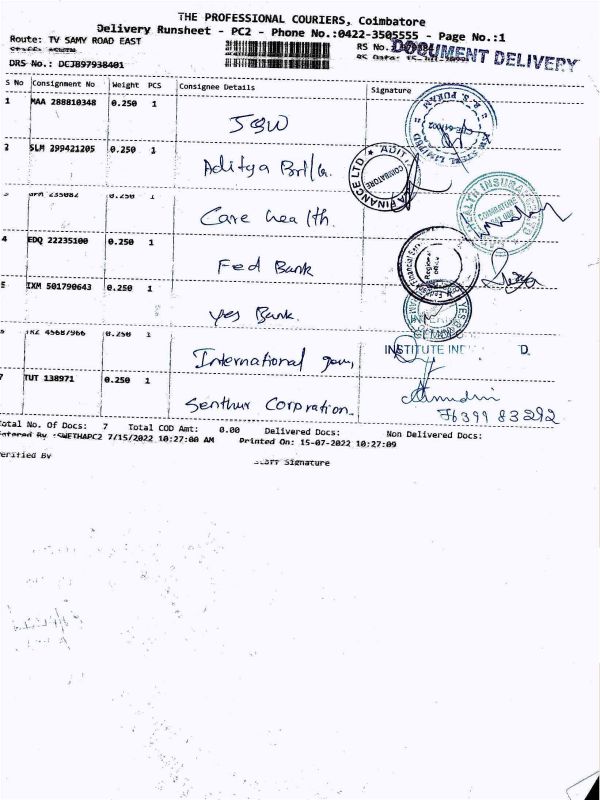 THE PROFESSIONAL COURIERS, Coimbatore
Delivery Runsheet - PC2 - Phone No.:0422-3505555 - Page No.:1
Route: TV SAMY ROAD EAST
RS No.
DOCUMENT DELIVERY
DRS No.: DCJ897938401
S No Consignment No Weight PCS Consignee Details Signature
1 MAA 288810348 0.250 1
JSW
2 SLM 299421205 0.250 1
Aditya Birla.
0.250 1
Care health.
4 EDQ 22235100 0.250 1
Fed Bank
5 IXM 501790643 0.250 1
Yes Bank.
45687966 0.250 1
International gem,
INSTITUTE
7 TUT 138971 0.250 1
Senthur Corpration.
76399 83292
Total No. Of Docs: 7 Total COD Amt: 0.00 Delivered Docs: Non Delivered Docs:
Entered By :SWETHAPC2 7/15/2022 10:27:00 AM Printed On: 15-07-2022 10:27:09
Verified By
Staff Signature